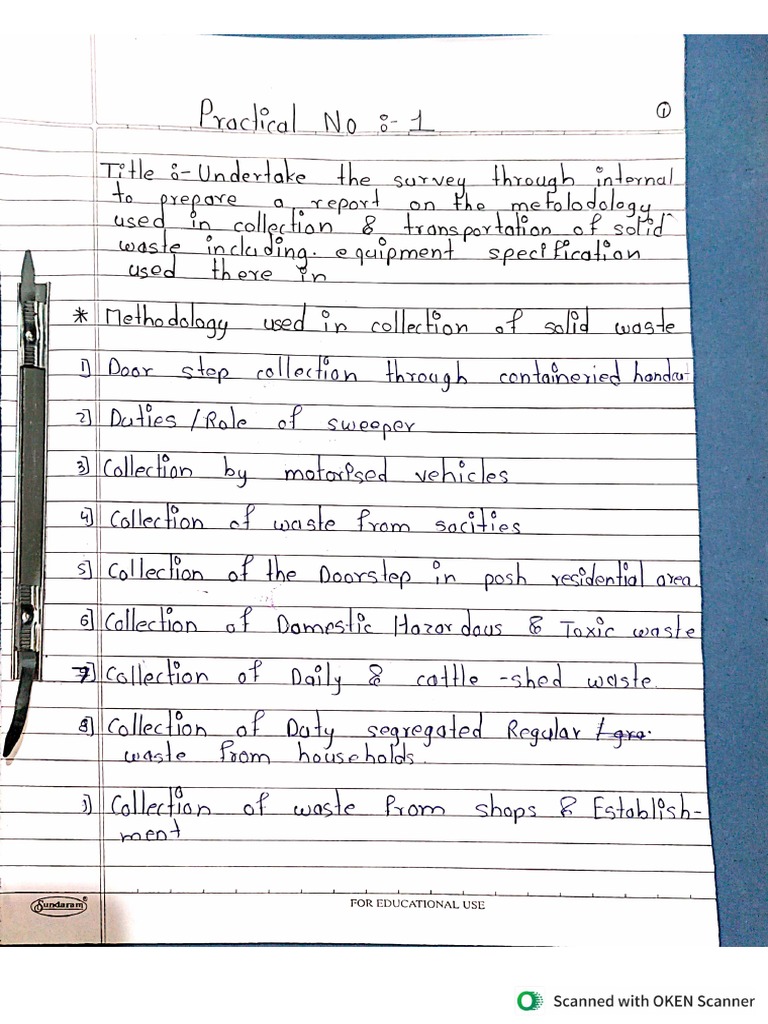 ①
Practical No :- 1
Title :- Undertake the survey through internal
to prepare a report on the metolodology
used in collection & transportation of solid
waste including. equipment specification
used there in
* Methodology used in collection of solid waste
1) Door step collection through containeried handcart
2) Duties / Role of sweeper
3) Collection by motorised vehicles
4) Collection of waste from socities
5) Collection of the Doorstep in posh residential area.
6) Collection of Domestic Hazordous & Toxic waste
7) Collection of Daily & cattle -shed waste.
8) Collection of Duty segregated Regular
waste from households.
9) Collection of waste from shops & Establish-
ment
Sundaram®
FOR EDUCATIONAL USE
Scanned with OKEN Scanner